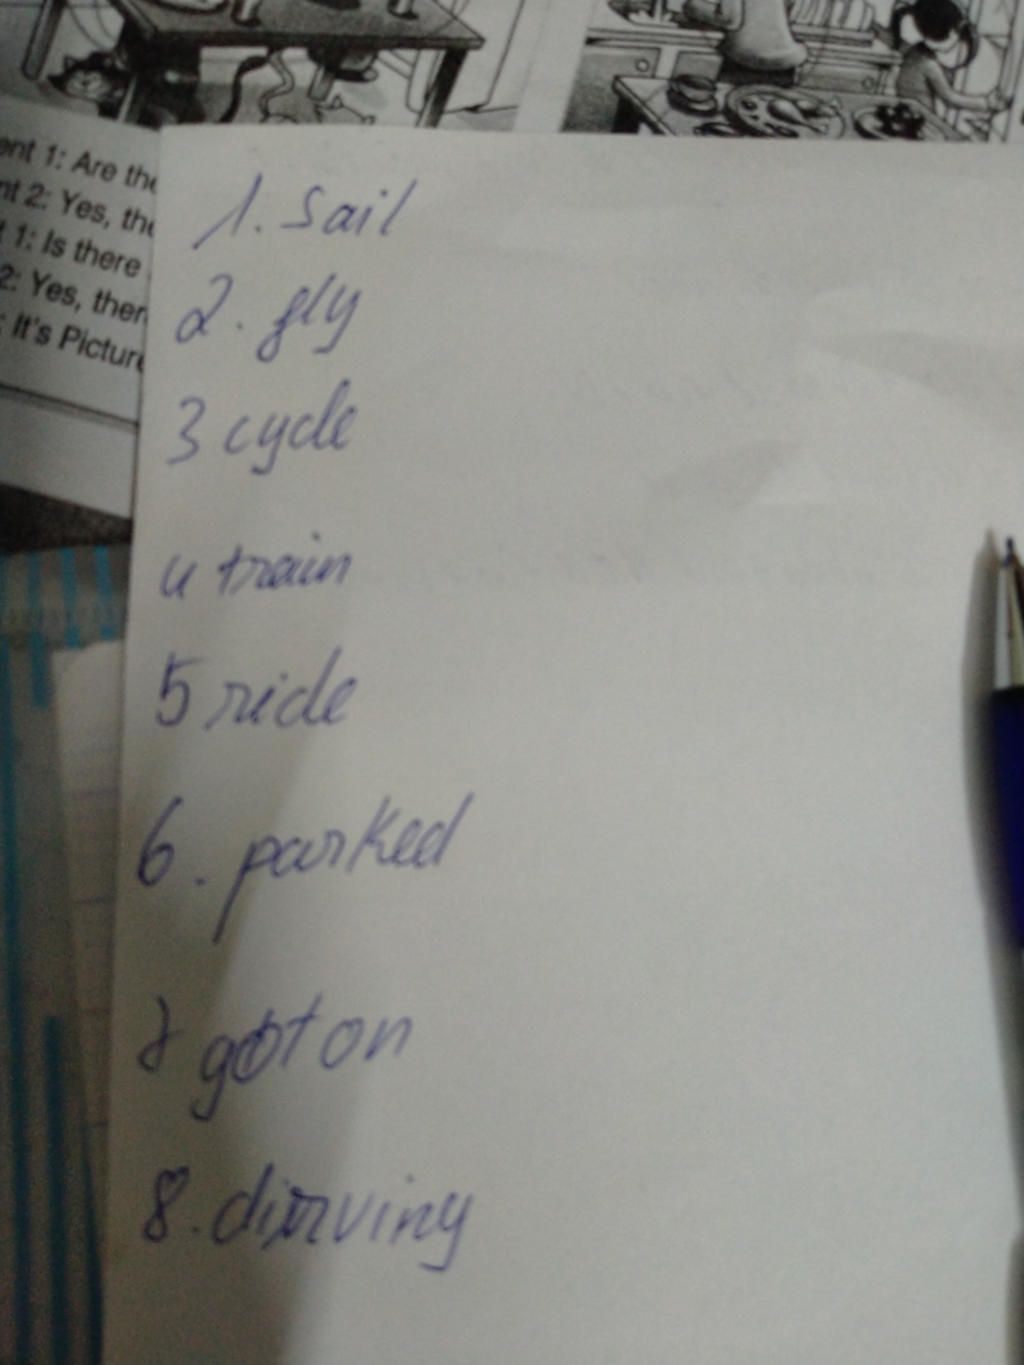 ent 1: Are the
nt 2: Yes, the
t 1: Is there
2: Yes, ther
: It's Picture
1. Sail
2. fly
3 cycle
4 train
5 ride
6. parked
7 got on
8. dirving